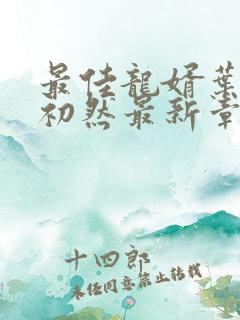 最佳龍婿葉
初然最新章
十四郎
未经同意禁止转载